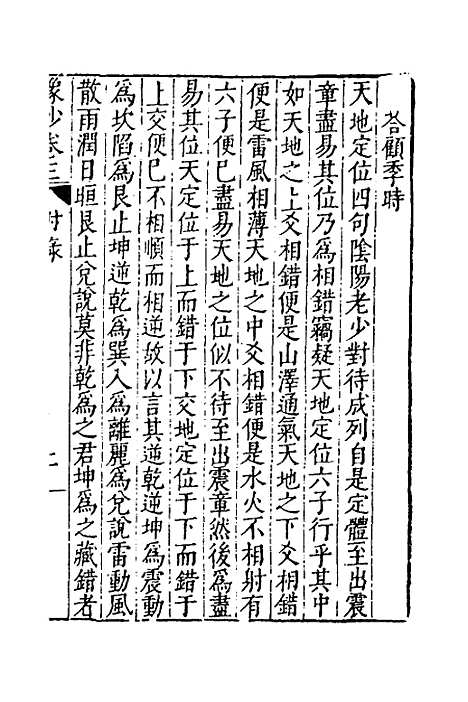 荅顧季時
天地定位四句陰陽老少對待成列自是定體至出震
章盡易其位乃爲相錯竊疑天地定位六子行乎其中
如天地之上爻相錯便是山澤通氣天地之下爻相錯
便是雷風相薄天地之中爻相錯便是水火不相射有
六子便已盡易天地之位似不待至出震章然後爲盡
易其位天定位于上而錯于下交地定位于下而錯于
上交便已不相順而相逆故以言其逆乾逆坤爲震動
爲坎陷爲艮止坤逆乾爲巽入爲離麗爲兌說雷動風
散雨潤日晅艮止兌說莫非乾爲之君坤爲之藏錯者
象抄卷三 附錄